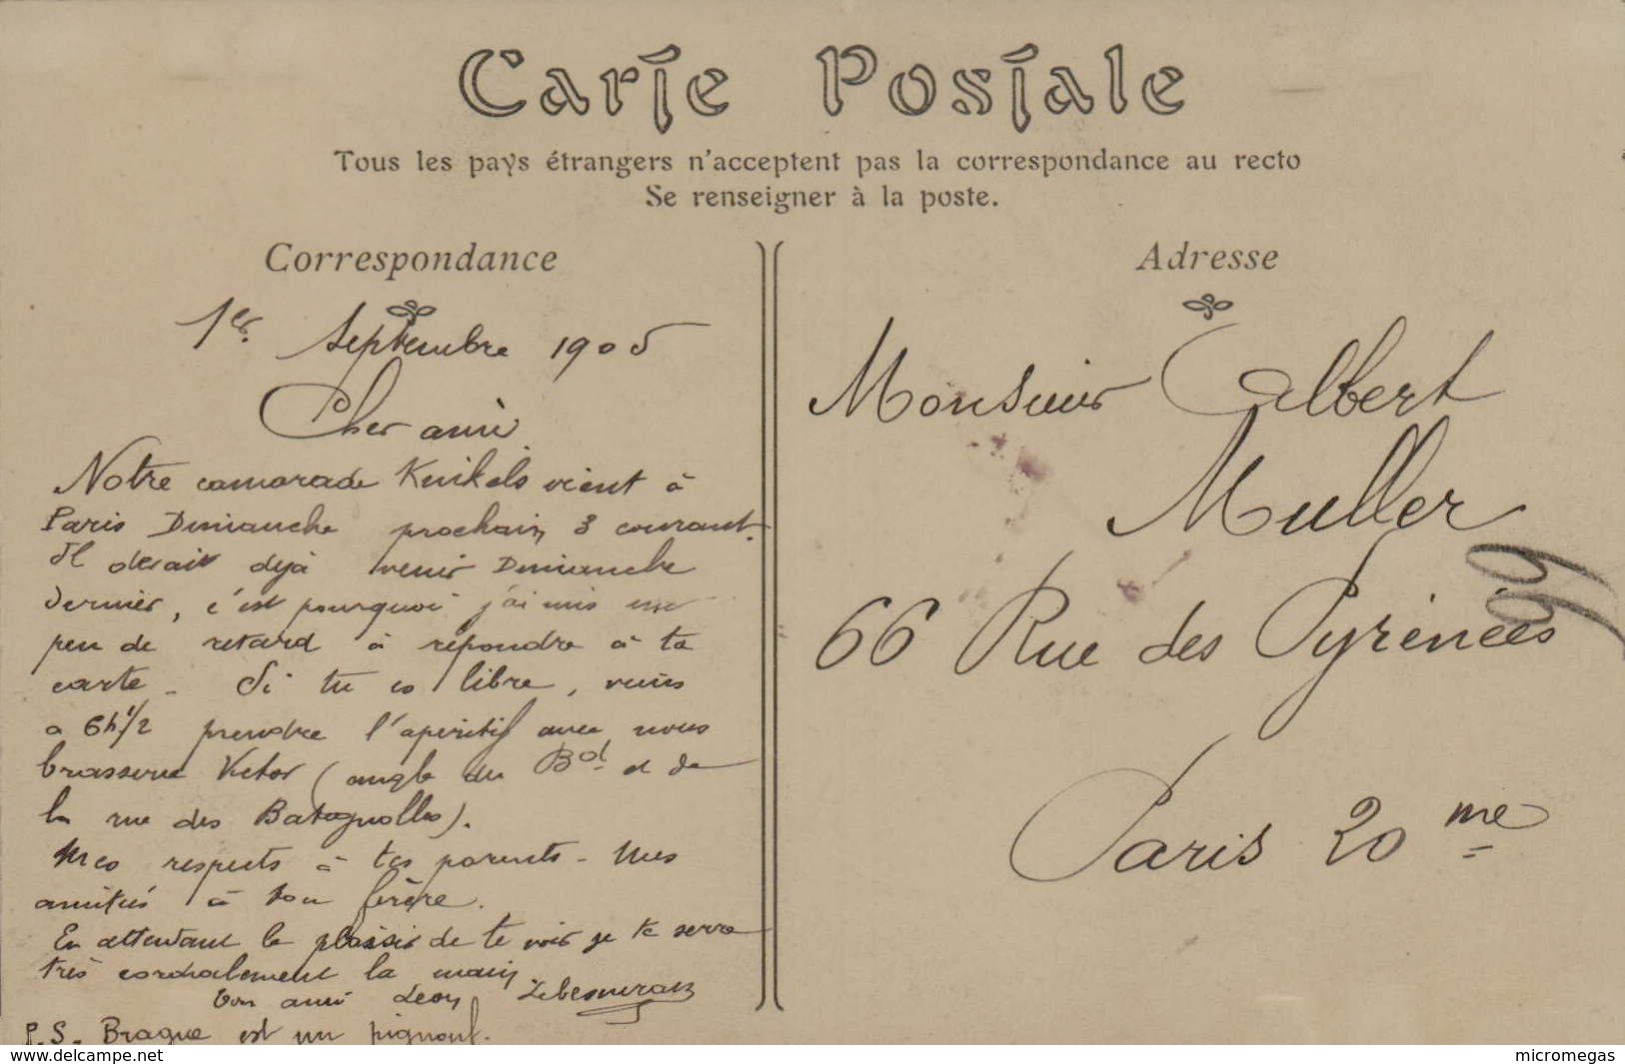 Carte Postale
Tous les pays étrangers n'acceptent pas la correspondance au recto
Se renseigner à la poste.
Correspondance
1er Septembre 1905
Cher ami
Notre camarade vient à
Paris Dimanche prochain 3 courant.
Il devait déjà venir Dimanche
dernier, c'est pourquoi j'ai mis un
peu de retard à répondre à ta
carte - Si tu es libre, viens
à 6h1/2 prendre l'apéritif avec nous
brasserie Victor (angle du Bd et de
la rue des Batagnolles).
Mes respects à tes parents - Mes
amitiés à ton frère.
En attendant le plaisir de te voir je te serre
très cordialement la main
Ton ami Léon
P.S. Braque est un pignouf.
Adresse
Monsieur Albert
Muller
66 Rue des Pyrénées
Paris 20me
99
www.delcampe.net
micromegas